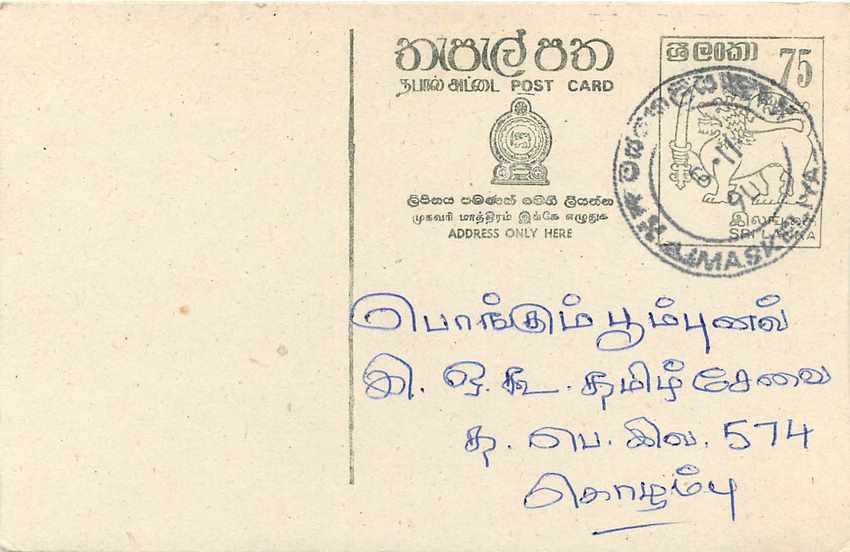 තැපැල් පත
தபால் அட்டை POST CARD
ලිපිනය පමණක් මෙහි ලියන්න
முகவரி மாத்திரம் இங்கே எழுதுக
ADDRESS ONLY HERE
ශ්‍රී ලංකා 75
இலங்கை
SRI LANKA
MASKELIYA
பொங்கும் பூம்புனல்
இ. ஒ. கூ. தமிழ் சேவை
த. பெ. இல. 574
கொழும்பு